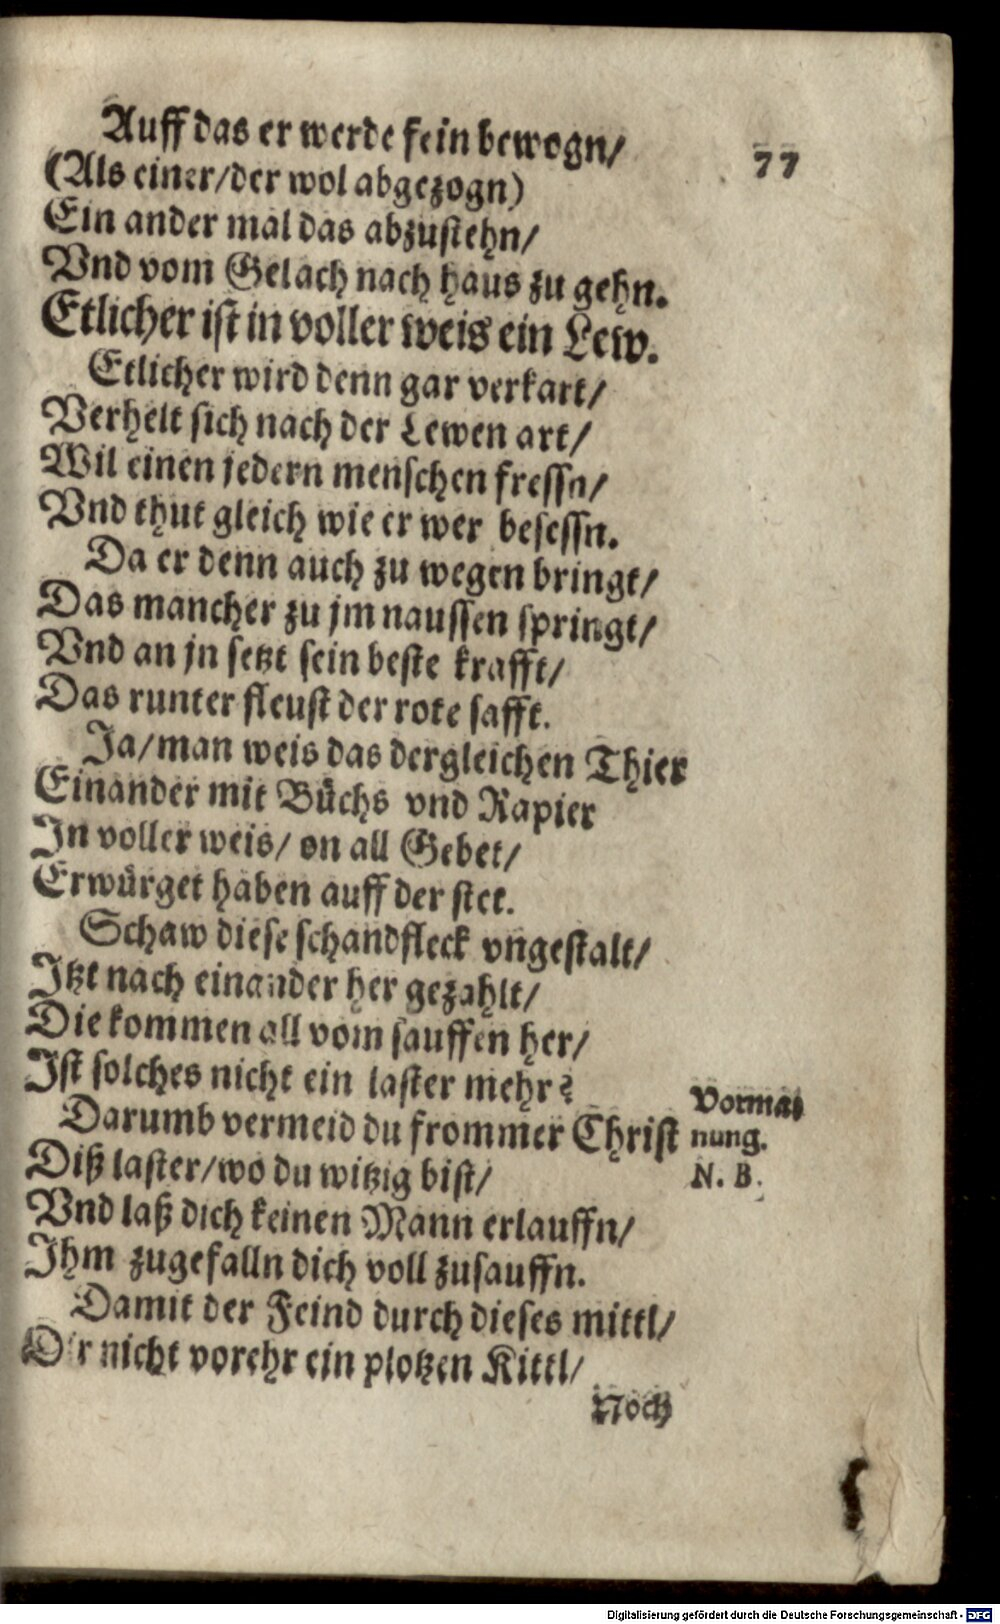 77
Auff das er werde fein bewogn/
(Als einer/der wol abgezogn)
Ein ander mal das abzustehn/
Vnd vom Gelach nach haus zu gehn.
Etlicher ist in voller weis ein Lew.
Etlicher wird denn gar verkart/
Verhelt sich nach der Lewen art/
Wil einen jedern menschen fressn/
Vnd thut gleich wie er wer besessn.
Da er denn auch zu wegen bringt/
Das mancher zu jm naussen springt/
Vnd an jn setzt sein beste krafft/
Das runter fleust der rote safft.
Ja/man weis das dergleichen Thier
Einander mit Büchs vnd Rapier
In voller weis/ on all Gebet/
Erwürget haben auff der stet.
Schaw diese schandfleck vngestalt/
Itzt nach einander her gezahlt/
Die kommen all vom sauffen her/
Ist solches nicht ein laster mehr?
Darumb vermeid du frommer Christ
Diß laster/wo du witzig bist/
Vnd laß dich keinen Mann erlauffn/
Ihm zugefalln dich voll zusauffn.
Damit der Feind durch dieses mittl/
Dir nicht vorehr ein plotzen Kittl/
Noch
Vorma
nung.
N. B.
Digitalisierung gefördert durch die Deutsche Forschungsgemeinschaft - DFG